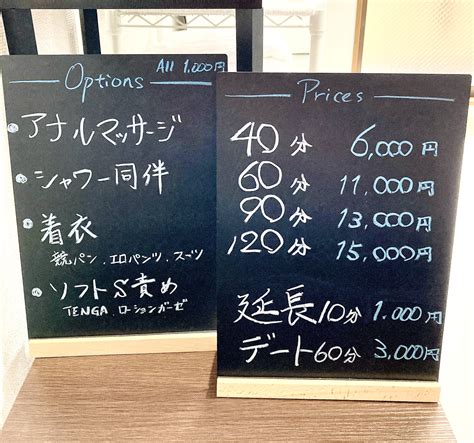 Options
All 1.000円
アナルマッサージ
シャワー同伴
着衣
競パン、エロパンツ、スーツ
ソフトS責め
TENGA、ローションガーゼ
Prices
40分 6,000円
60分 11,000円
90分 13,000円
120分 15,000円
延長10分 1.000円
デート60分 3,000円